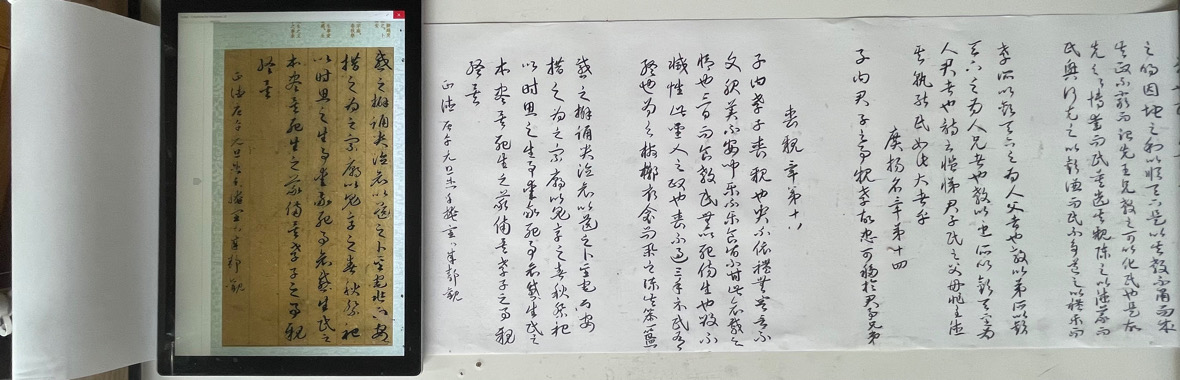 之明因地之利以順天下是以其教不肅而成
其政不嚴而治先王見教之可以化民也是故
先之以博愛而民莫遺其親陳之以德義而
民興行先之以敬讓而民不爭導之以禮樂而
孝所以敬天下之為人父者也教以弟所以敬
天下之為人兄者也教以臣所以敬天下之為
人君者也詩云愷悌君子民之父母非至德
其孰能民如此大者乎
廣揚名章第十四
子曰君子之事親孝故忠可移於君事兄弟
喪親章第十八
子曰孝子喪親也哭不依禮無容言不
文服美不安聞樂不樂食旨不甘此哀戚之
情也三日而食教民無以死傷生也毀不
滅性此聖人之政也喪不過三年示民有
終也為之棺槨衣衾而舉之陳其簠簋
慼之擗踊哭泣哀以送之卜其宅兆而安
措之為之宗廟以鬼享之春秋祭祀
以時思之生事愛敬死事哀慼生民之
本盡矣死生之義備矣孝子之事親
終矣
正德
慼之擗踊哭泣哀以送之卜其宅兆而安
措之為之宗廟以鬼享之春秋祭祀
以時思之生事愛敬死事哀慼生民之
本盡矣死生之義備矣孝子之事親
終矣
正德